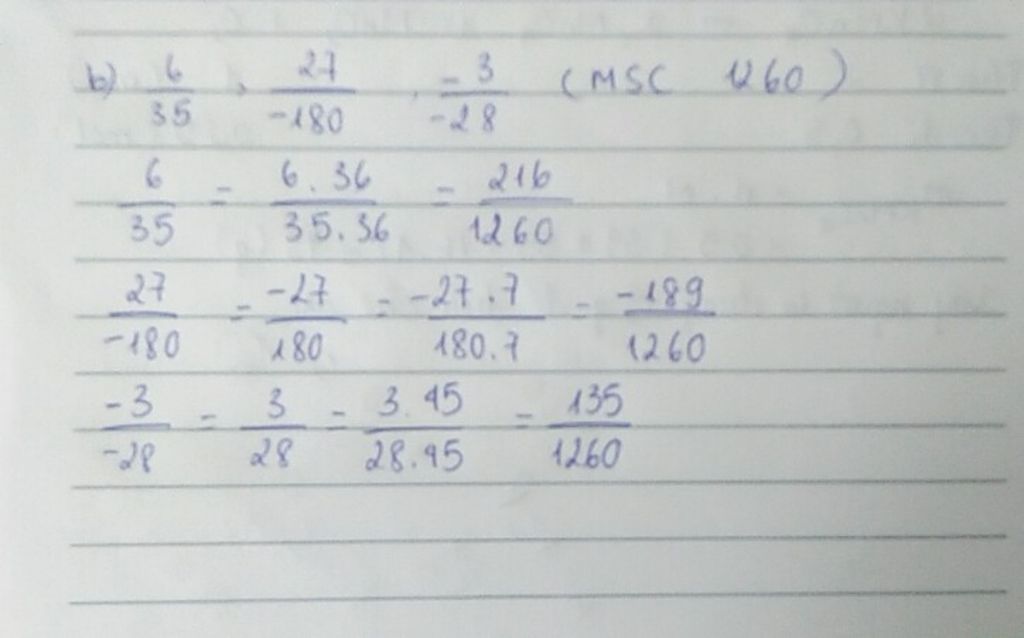 b) 6/35, 27/-180, -3/-28 (MSC 1260)
6/35 = 6.36/35.36 = 216/1260
27/-180 = -27/180 = -27.7/180.7 = -189/1260
-3/-28 = 3/28 = 3.45/28.45 = 135/1260